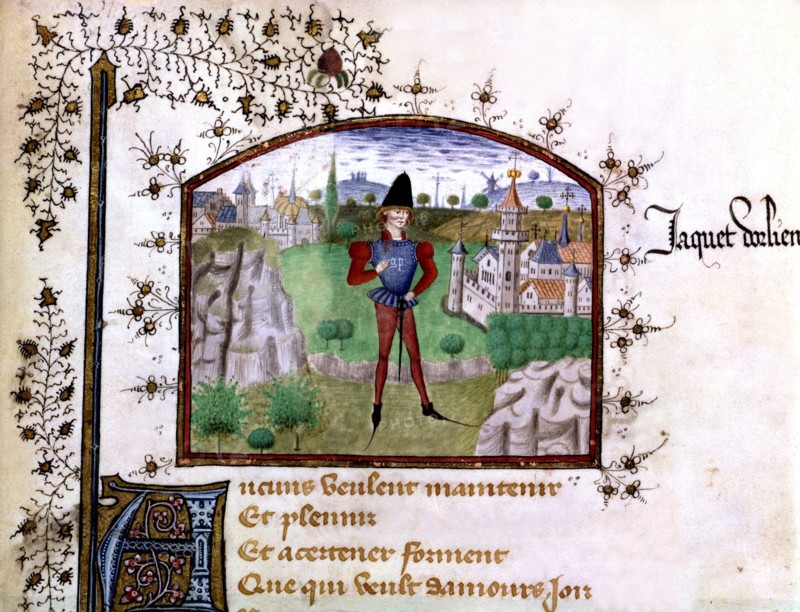 Jaquet dorlien
gp
Aucuns veulent maintenir
Et plennir
Et acertener forment
Que qui veult damours Joir